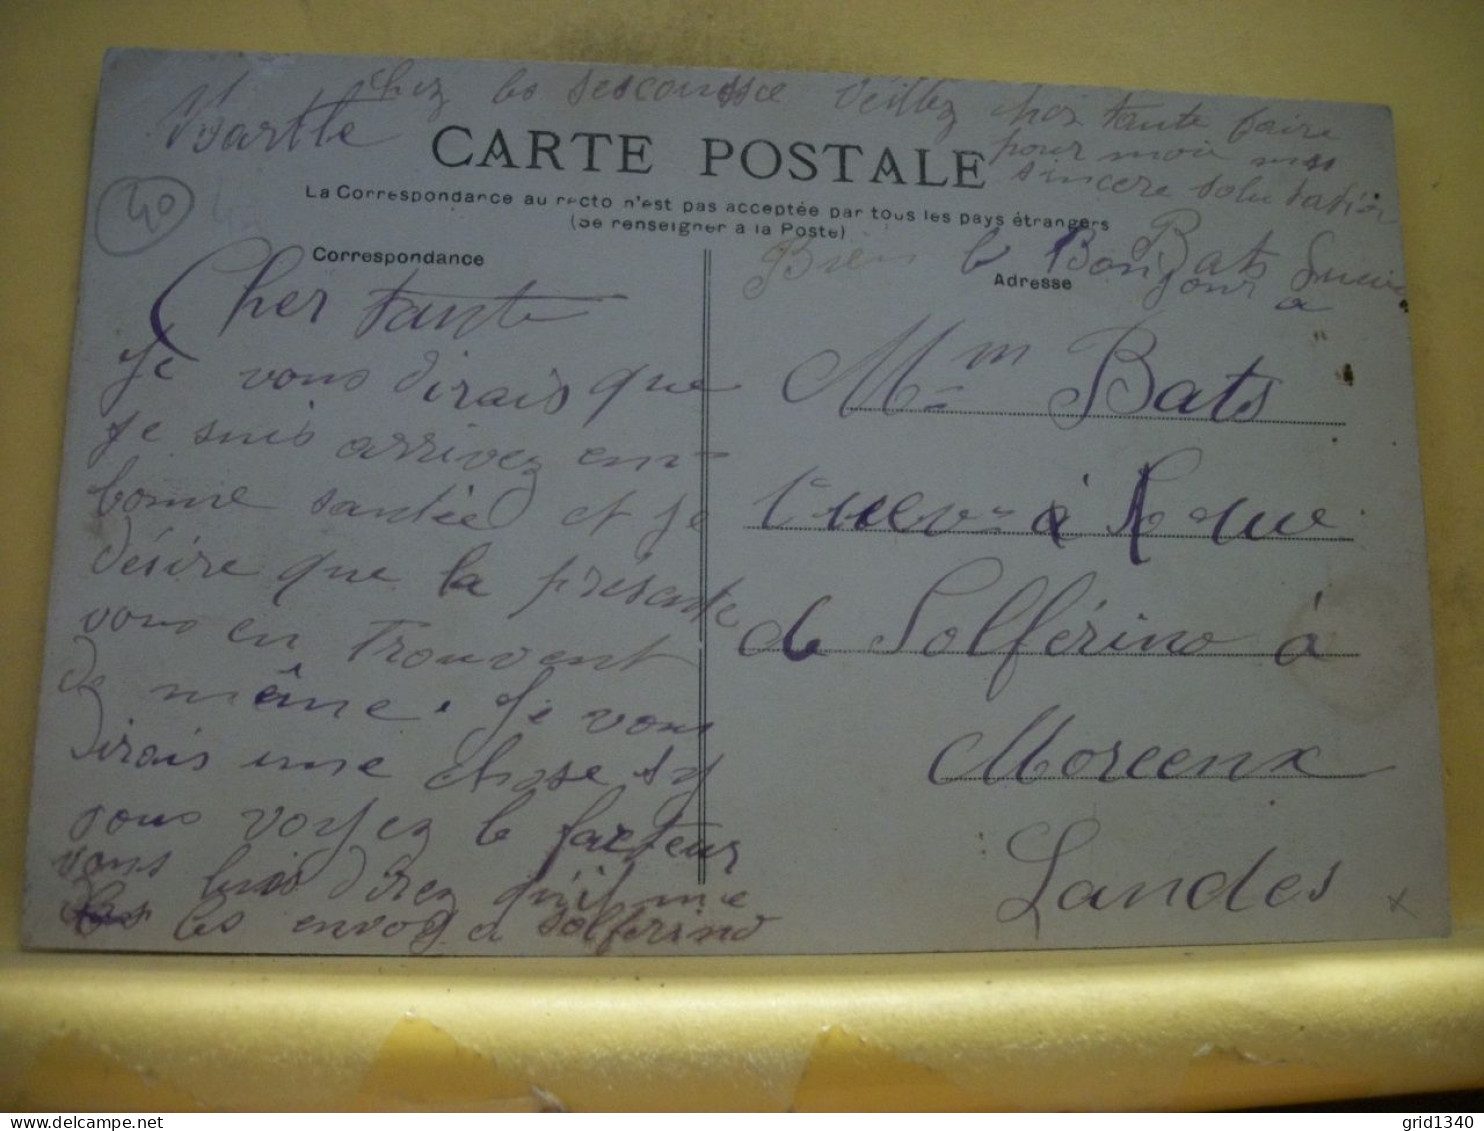 chez les veillez cher tante faire
pour moi mes
sincere solutation
CARTE POSTALE
La Correspondance au recto n'est pas acceptée par tous les pays étrangers
(Se renseigner à la Poste)
40
Bien le Bonjour a
Bats
Correspondance
Adresse
Cher tante
Je vous dirais que
je suis arrivez en
bonne santée et je
désire que la présente
vous en Trouvent
de même. Je vous
dirais une chose si
vous voyez le facteur
vous lui direz qu'il me
les envoy a solferino
Mme Bats
à
de Solférino à
Morcenx
Landes
delcampe.net
grid1340